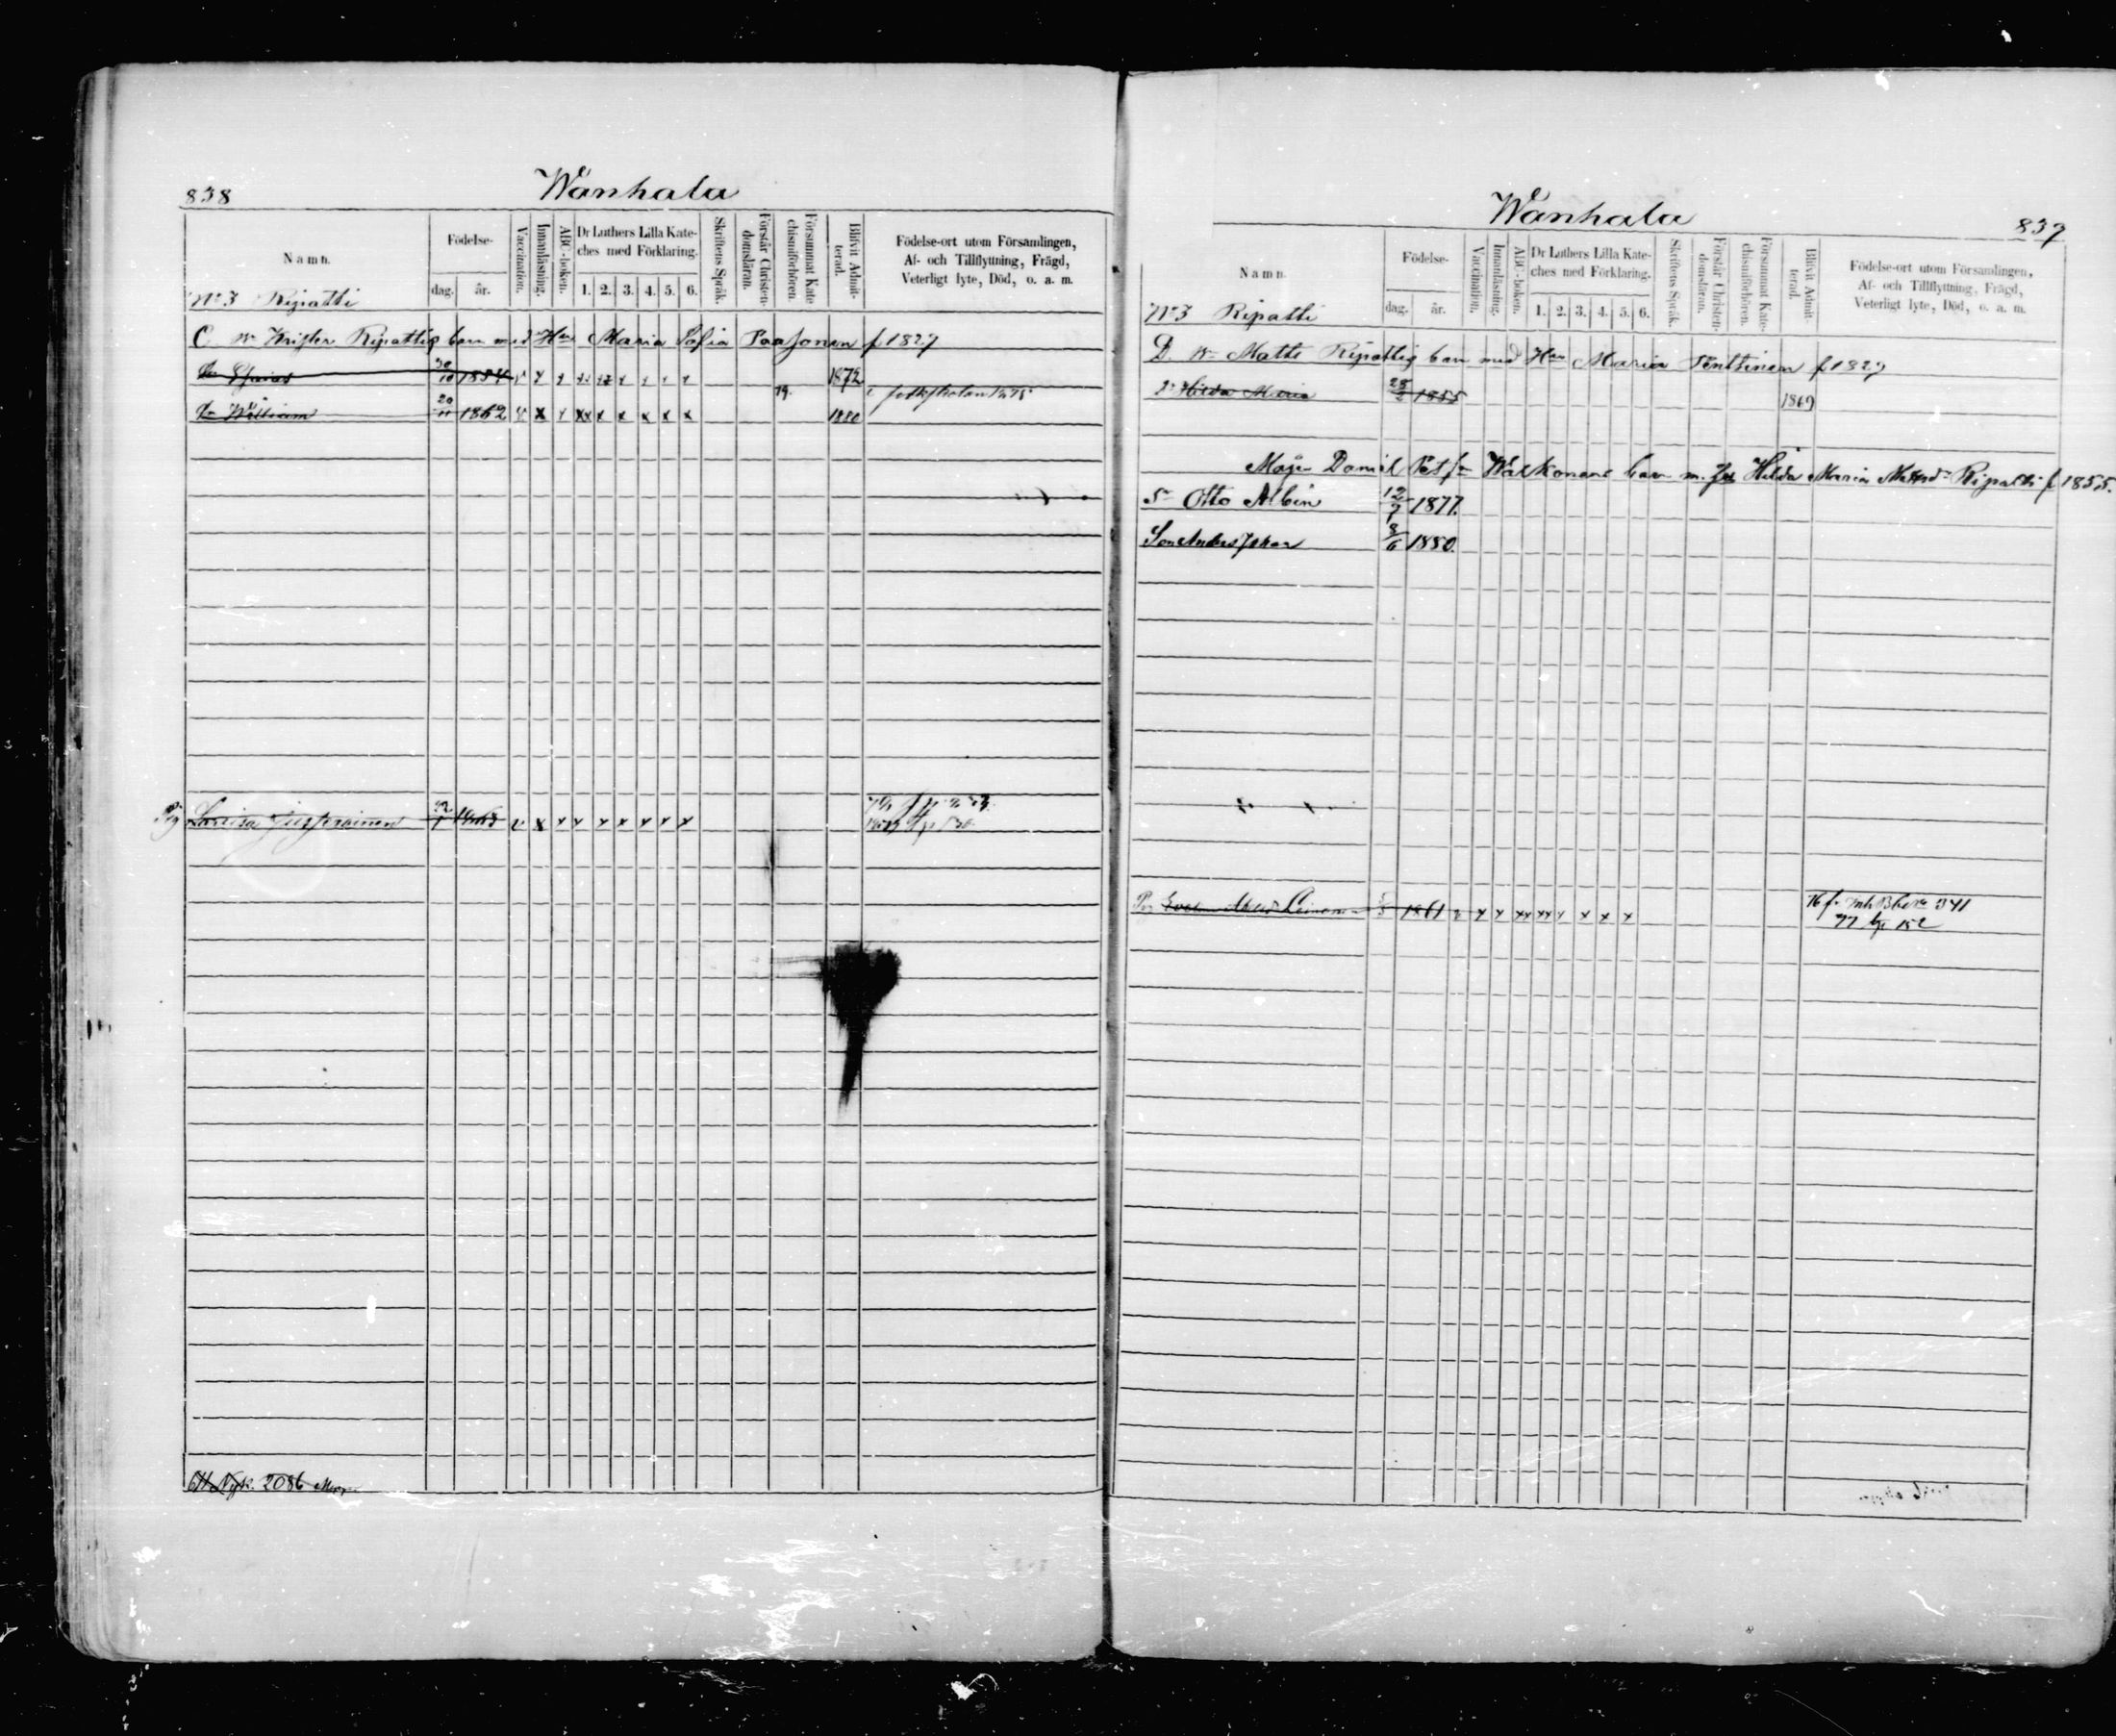 838
Wanhala
Namn.
Födelse-
dag. år.
Vaccination.
Innanläsning.
ABC-boken.
Dr Luthers Lilla Kate-
ches med Förklaring.
1. 2. 3. 4. 5. 6.
Skriftens Språk.
Förstår Christen-
domsläran.
Försummat Kate
chismiförhören.
Blifvit Admit-
terad.
Födelse-ort utom Församlingen,
Af- och Tillflyttning, Frägd,
Veterligt lyte, Död, o. a. m.
No 3 Ripatti
C. Krister Ripattis barn med Hu Maria Sofia Paasonen f 1827
Esaias 30/10 1854 1872
William 20/11 1862 79. 1880
Pig Lovisa 1863
2086
Wanhala
839
Namn.
Födelse-
dag. år.
Vaccination.
Innanläsning.
ABC-boken.
Dr Luthers Lilla Kate-
ches med Förklaring.
1. 2. 3. 4. 5. 6.
Skriftens Språk.
Förstår Christen-
domsläran.
Försummat Kate-
chismiförhören.
Blifvit Admit-
terad.
Födelse-ort utom Församlingen,
Af- och Tillflyttning, Frägd,
Veterligt lyte, Död, o. a. m.
No 3 Ripatti
D. Matts Ripattis barn med Hu Maria Pentsinen f 1829
Hilda Maria 28/2 1855 1869
Daniel Petsn Warkonens barn m. Hilda Maria Mattsd Ripatti f 1855.
Sn Otto Albin 12/7 1877.
Son Anders Johan 8/6 1880.
Pig 1861 76 fr 341
77 152